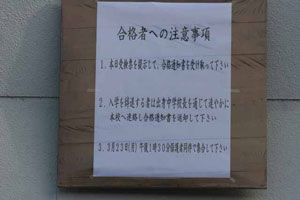 合格者への注意事項
1．本日受検票を提示して、合格通知書を受け取って下さい
2．入学を辞退する者は出身中学校長を通じて速やかに
本校へ連絡し合格通知書を返却して下さい
3．3月23日(月)午後1時30分保護者同伴で集合して下さい